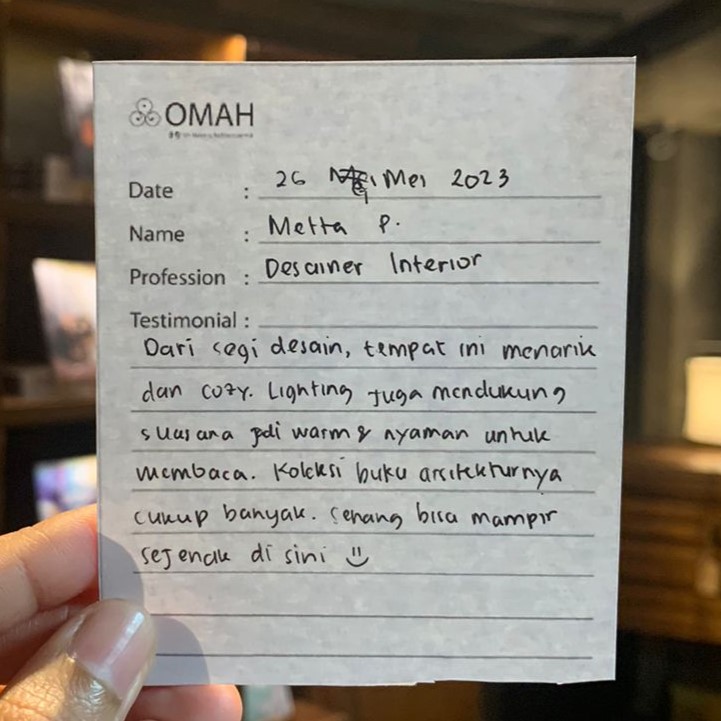 OMAH
Date : 26 Mei 2023
Name : Metta P.
Profession : Desainer Interior
Testimonial :
Dari segi desain, tempat ini menarik
dan cozy. Lighting juga mendukung
suasana jadi warm & nyaman untuk
membaca. Koleksi buku arsitekturnya
cukup banyak. Senang bisa mampir
sejenak di sini